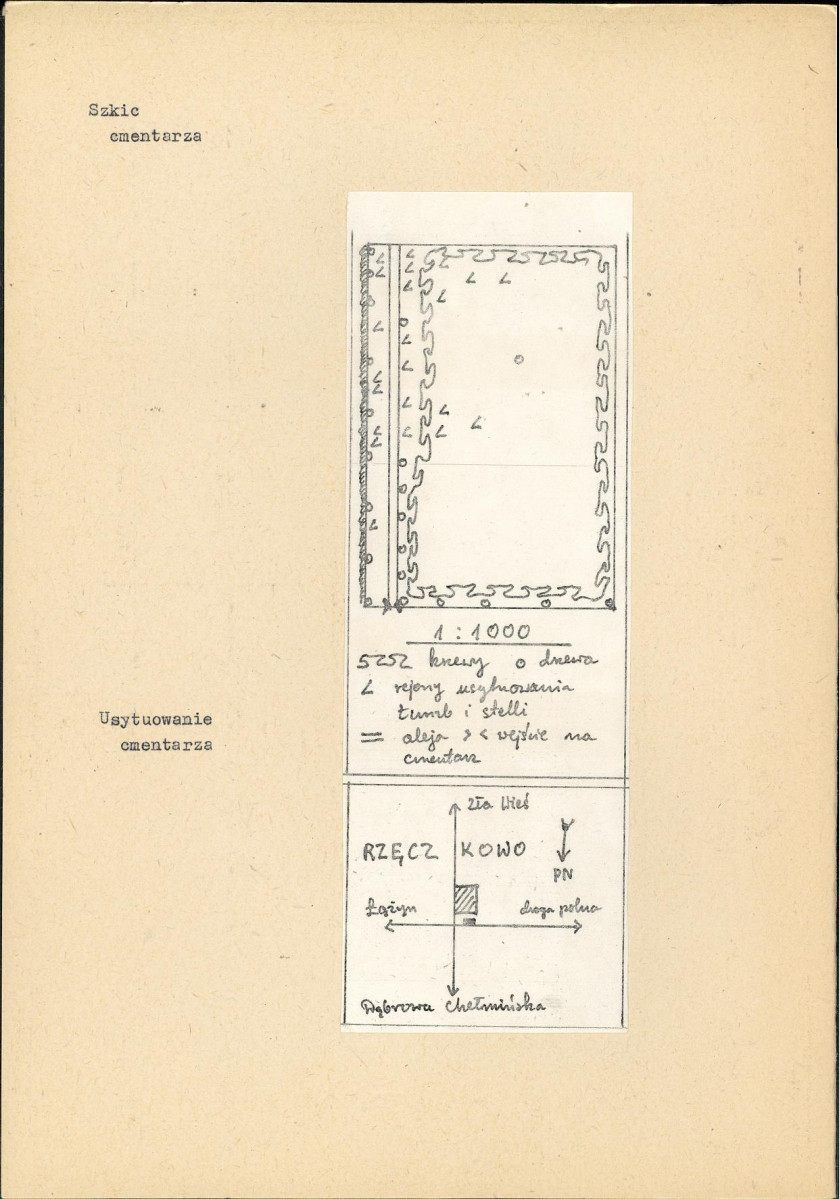 Szkic
cmentarza
1 : 1000
krzewy o drzewa
rejony usytuowania
tumb i stelli
= aleja > < wejście na
cmentarz
Usytuowanie
cmentarza
Zła Wieś
RZĘCZKOWO
PN
Łążyn droga polna
Dąbrowa Chełmińska